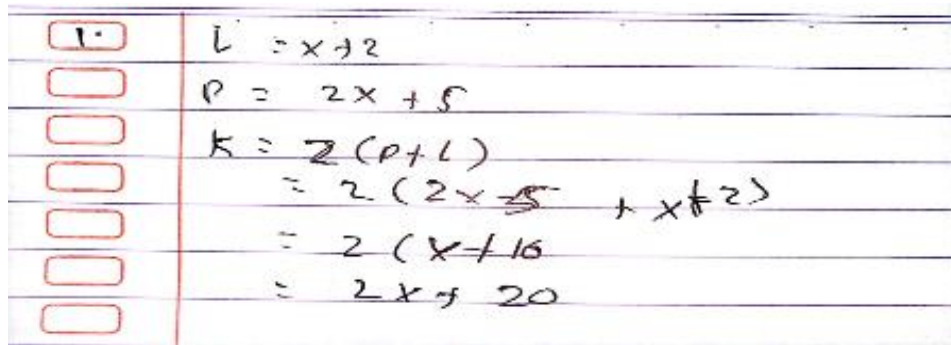 1. L = x+2
P = 2x + 5
K = 2 (P+L)
= 2 (2x+5 + x+2)
= 2 (x+10
= 2x + 20